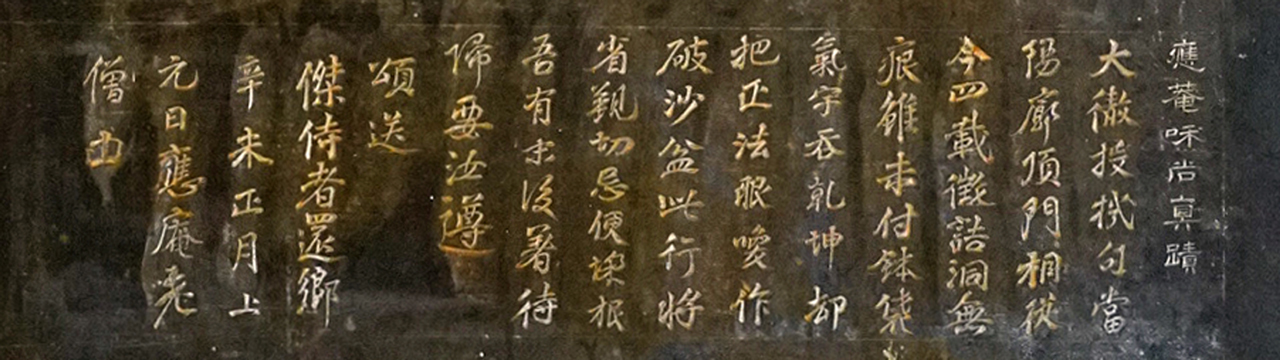 應菴咊尚真蹟
大徹投機句當
陽廓頂門相從
今四載徵詰洞無
痕雖未付鉢袋
氣宇吞乾坤却
把正法眼喚作
破沙盆此行將
省覲切忌便垜根
吾有末後著待
歸要汝遵
頌送
傑侍者還鄉
辛未正月上
元日應庵老
僧